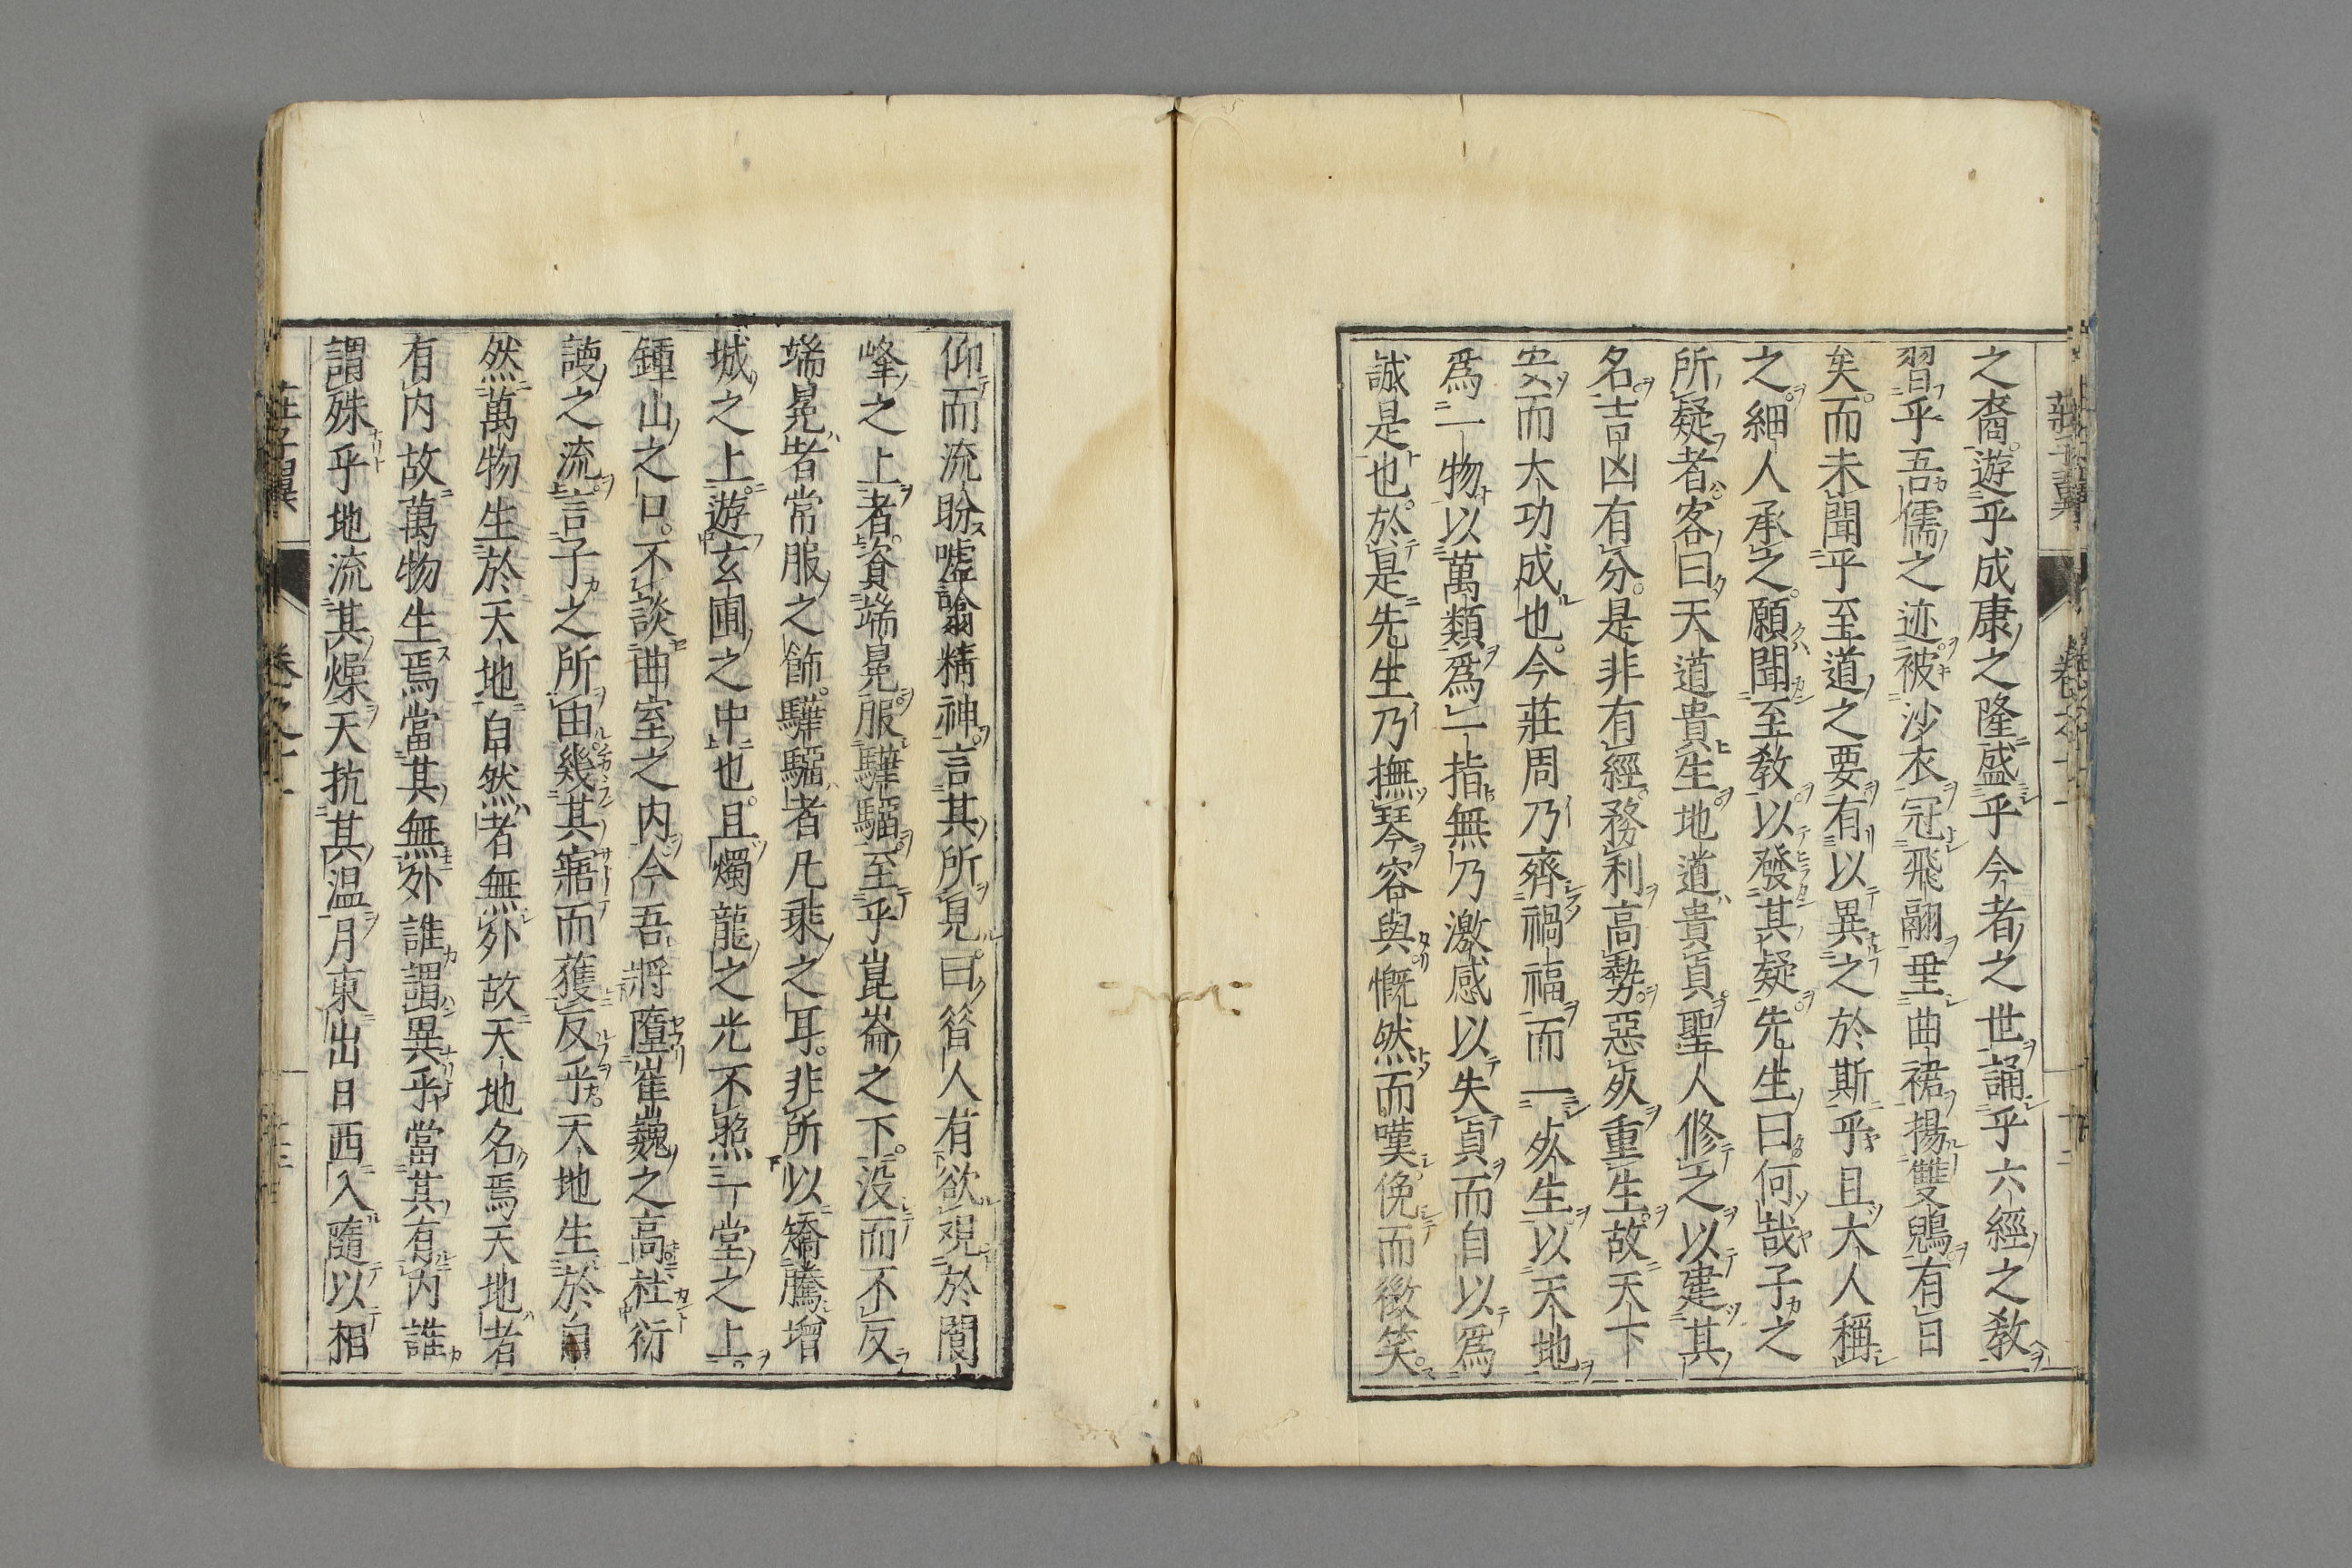 之裔遊乎成康之隆盛乎今者之世誦乎六經之教
習乎吾儒之迹被沙衣冠飛翮垂曲裙揚雙鶂有日
矣而未聞乎至道之要有以異之於斯乎且大人稱
之細人承之願聞至教以發其疑先生曰何哉子之
所疑者客曰天道貴生地道貴貞聖人修之以建其
名吉凶有分是非有經務利高勢惡死重生故天下
安而大功成也今莊周乃齊禍福而一死生以天地
爲一物以萬類爲一指無乃激感以失貞而自以爲
誠是也於是先生乃撫琴容與慨然而嘆俛而微笑
仰而流盼噓噏精神言其所見曰昝人有欲覌於閬
峰之上者資端冕服驊騮至乎崑崙之下没而不反
端冕者常服之飾驊騮者凡乘之耳非所以矯騰增
城之上遊玄圃之中也且燭龍之光不照一堂之上
鍾山之口不談曲室之内今吾將墮崔巍之高杜衍
謾之流言子之所由幾其寤而獲反乎天地生於自
然萬物生於天地自然者無外故天地名焉天地者
有内故萬物生焉當其無外誰謂異乎當其有内誰
謂殊乎地流其燥天抗其温月東出日西入隨以相
莊子翼 卷之十一